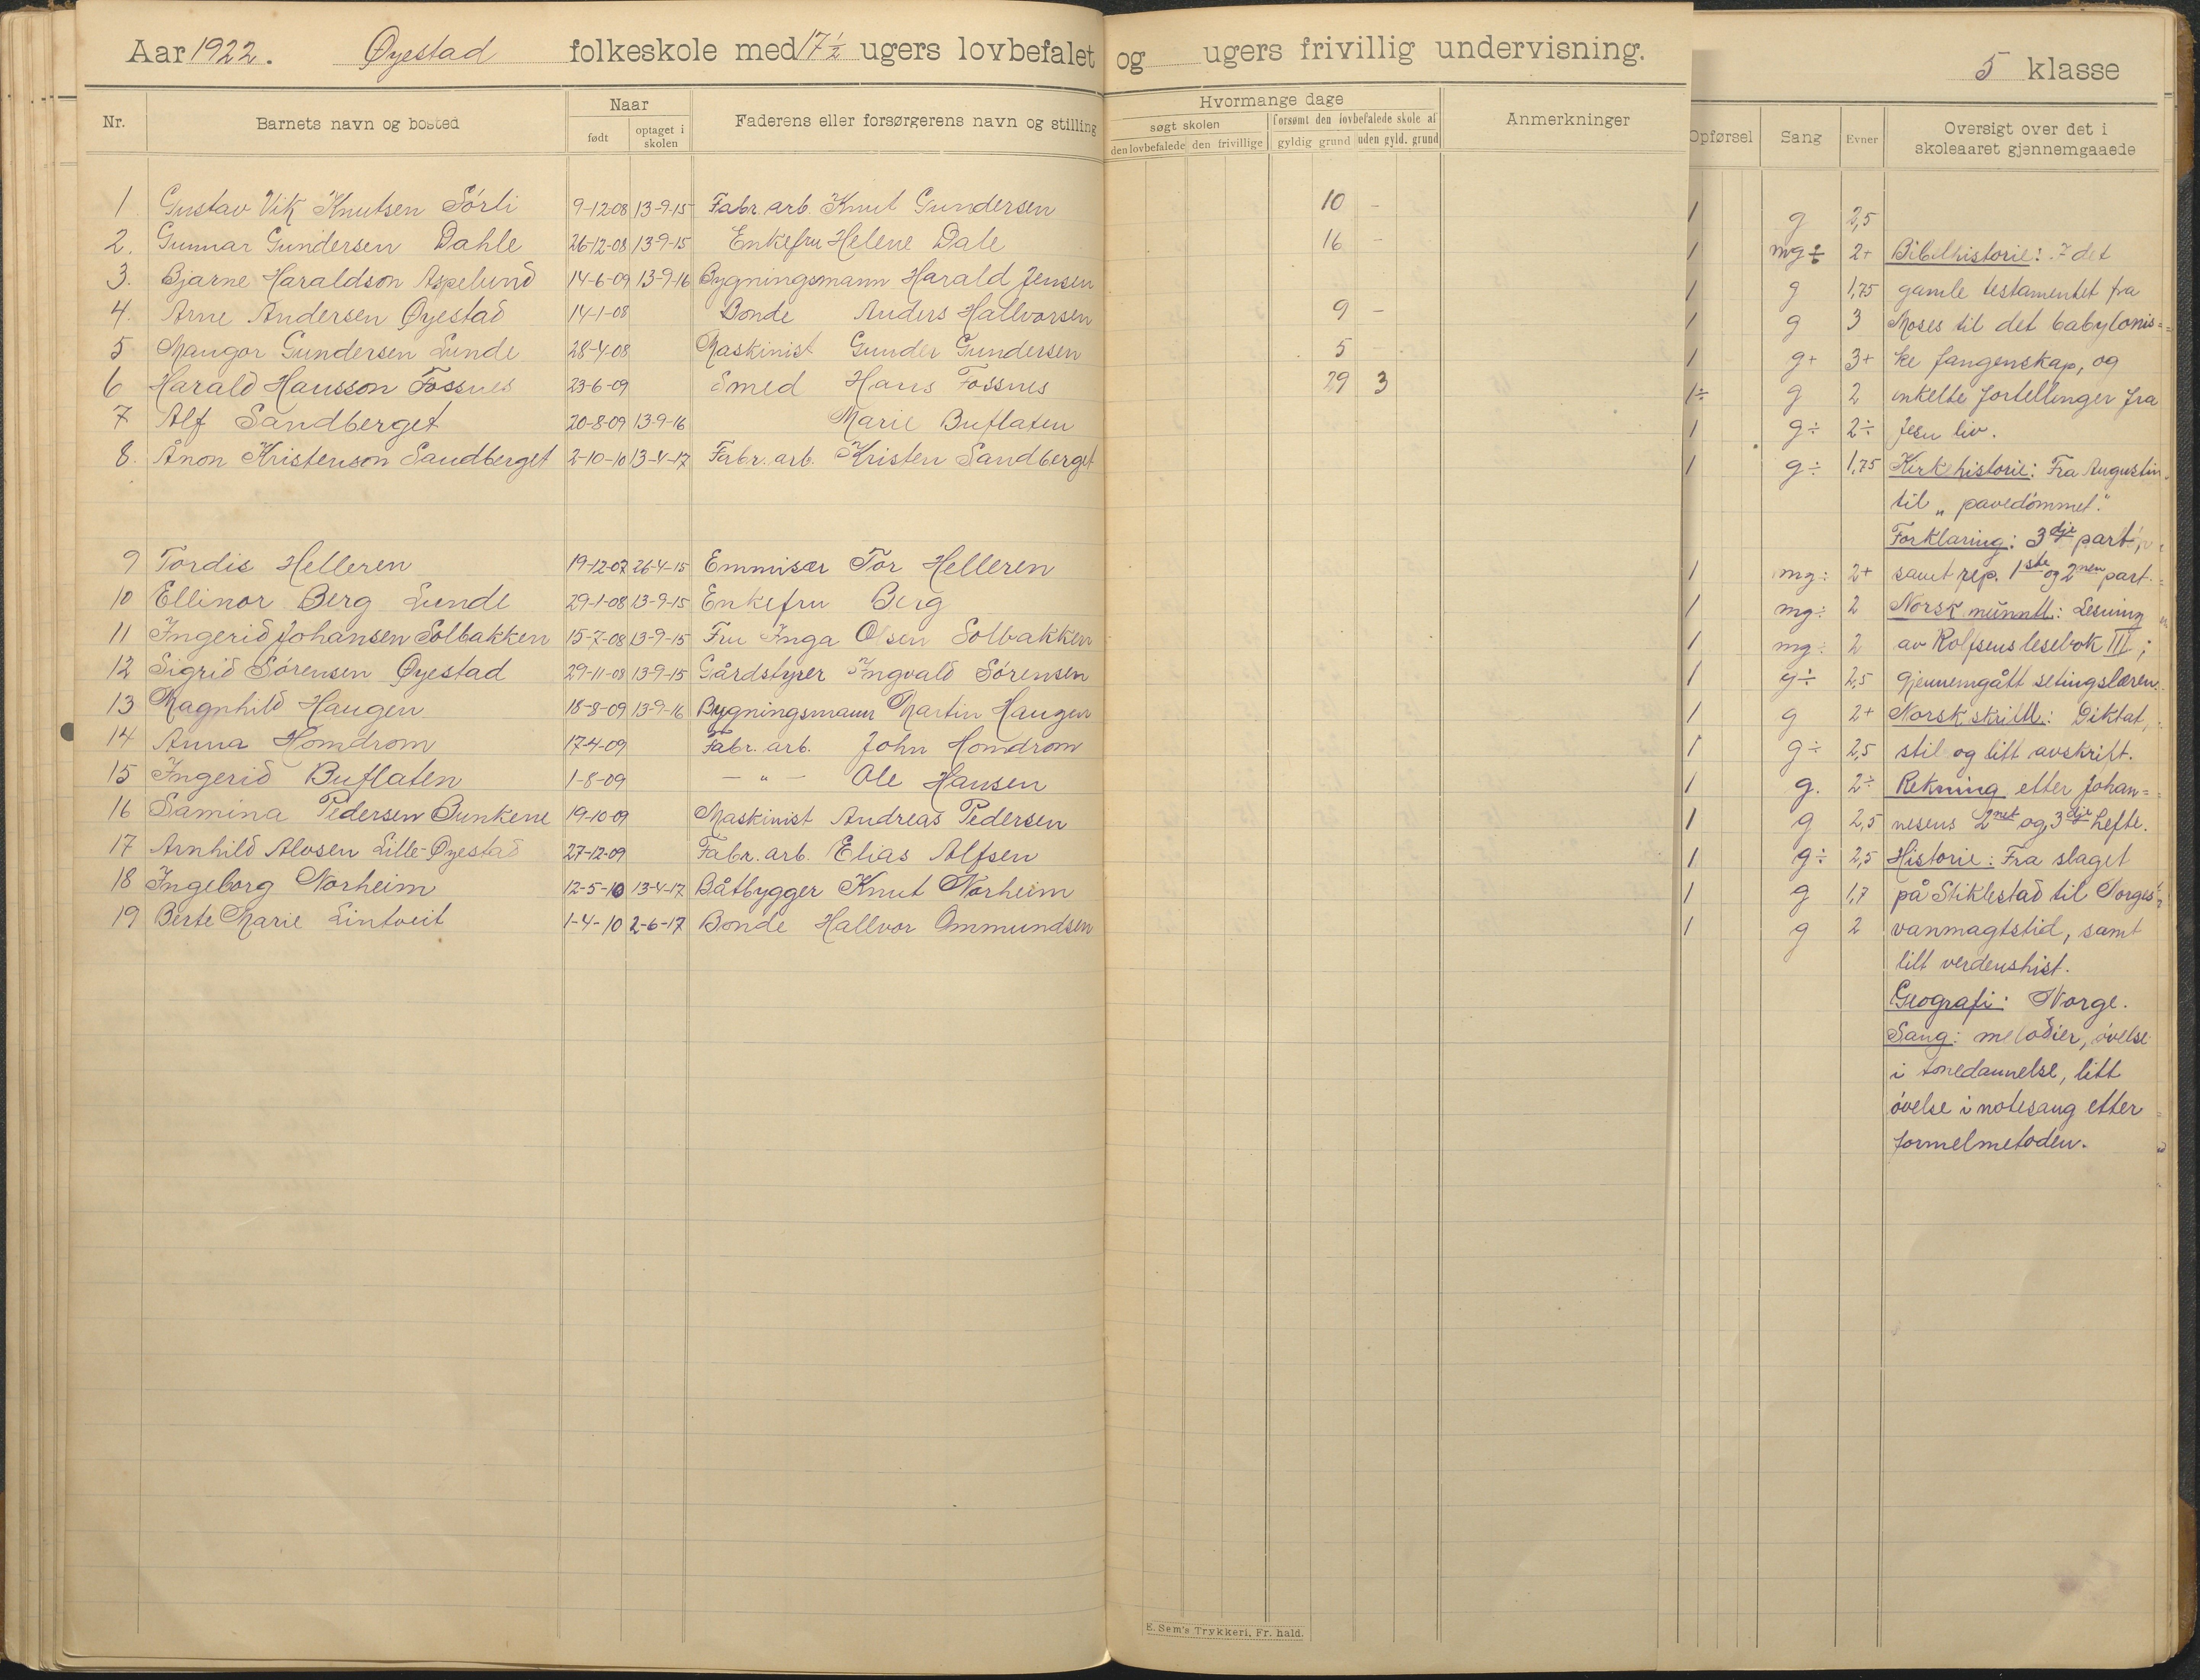 Aar 1922. Øyestad folkeskole med 17 1/2 ugers lovbefalet og ugers frivillig undervisning. 5 klasse
Nr. Barnets navn og bosted Naar Faderens eller forsørgerens navn og stilling Hvormange dage Anmerkninger Opførsel Sang Evner Oversigt over det i skoleaaret gjennemgaaede
født optaget i skolen søgt skolen forsømt den lovbefalede skole af
den lovbefalede den frivillige gyldig grund uden gyld. grund
1 Gustav Vik Knutsen Sörli 9-12-08 13-9-15 Fabr. arb. Knut Gundersen 10 - 1 g 2,5
2. Gunnar Gundersen Dahle 26-12-08 13-9-15 Enkefru Helene Dale 16 - 1 mg÷ 2+ Bibelhistorie: I det
3. Bjarne Haraldson Aspelund 14-6-09 13-9-16 Bygningsmann Harald Jensen 1 g 1,75 gamle testamentet fra
4. Arne Andersen Øyestad 14-1-08 Bonde Anders Hallvorsen 9 - 1 g 3 Moses til det babylonis=
5 Mangor Gundersen Lunde 28-4-08 Maskinist Gunder Gundersen 5 - 1 g+ 3+ ke fangenskap, og
6 Harald Hansson Fossnes 23-6-09 Smed Hans Fossnes 29 3 1÷ g 2 enkelte fortellinger fra
7 Alf Sandberget 20-8-09 13-9-16 Marie Buflaten 1 g÷ 2÷ Jesu liv.
8. Anon Kristenson Sandberget 2-10-10 13-4-17 Fabr. arb. Kristen Sandberget 1 g÷ 1,75 Kirkehistorie: Fra Augustin
til „pavedömmet."
Forklaring: 3dje part,
9 Tordis Helleren 19-12-07 26-4-15 Emmisær Tor Helleren 1 mg÷ 2+ samt rep. 1ste og 2nen part.
10 Ellinor Berg Lunde 29-1-08 13-9-15 Enkefru Berg 1 mg÷ 2 Norsk munntl: Lesning
11 Ingerid Johansen Solbakken 15-7-08 13-9-15 Fru Inga Olsen Solbakken 1 mg÷ 2 av Rolfsens lesebok III;
12 Sigrid Sörensen Øyestad 29-11-08 13-9-15 Gårdstyrer Ingvald Sörensen 1 g÷ 2,5 gjennemgått setningslæren.
13 Ragnhild Haugen 18-8-09 13-9-16 Bygningsmann Martin Haugen 1 g 2+ Norsk skriftl: Diktat,
14 Anna Homdrom 17-4-09 Fabr. arb. John Homdrom 1 g÷ 2,5 stil og litt avskrift.
15 Ingerid Buflaten 1-8-09 — „ — Ole Hansen 1 g. 2÷ Rekning etter Johan=
16 Samina Pedersen Bunkene 19-10-09 Maskinist Andreas Pedersen 1 g 2,5 nesens 2net og 3dje hefte.
17 Arnhild Alvsen Lille-Øyestad 27-12-09 Fabr. arb. Elias Alfsen 1 g÷ 2,5 Historie: Fra slaget
18 Ingeborg Norheim 12-5-10 13-4-17 Båtbygger Knut Norheim 1 g 1,7 på Stiklestad til Norges
19 Berte Marie Lintveit 1-4-10 2-6-17 Bonde Hallvor Ommundsen 1 g 2 vanmagtstid, samt
litt verdenshist.
Geografi: Norge.
Sang: melodier, övelse
i tonedannelse, litt
övelse i notesang etter
formelmetoden.
E. Sem's Trykkeri, Fr. hald.